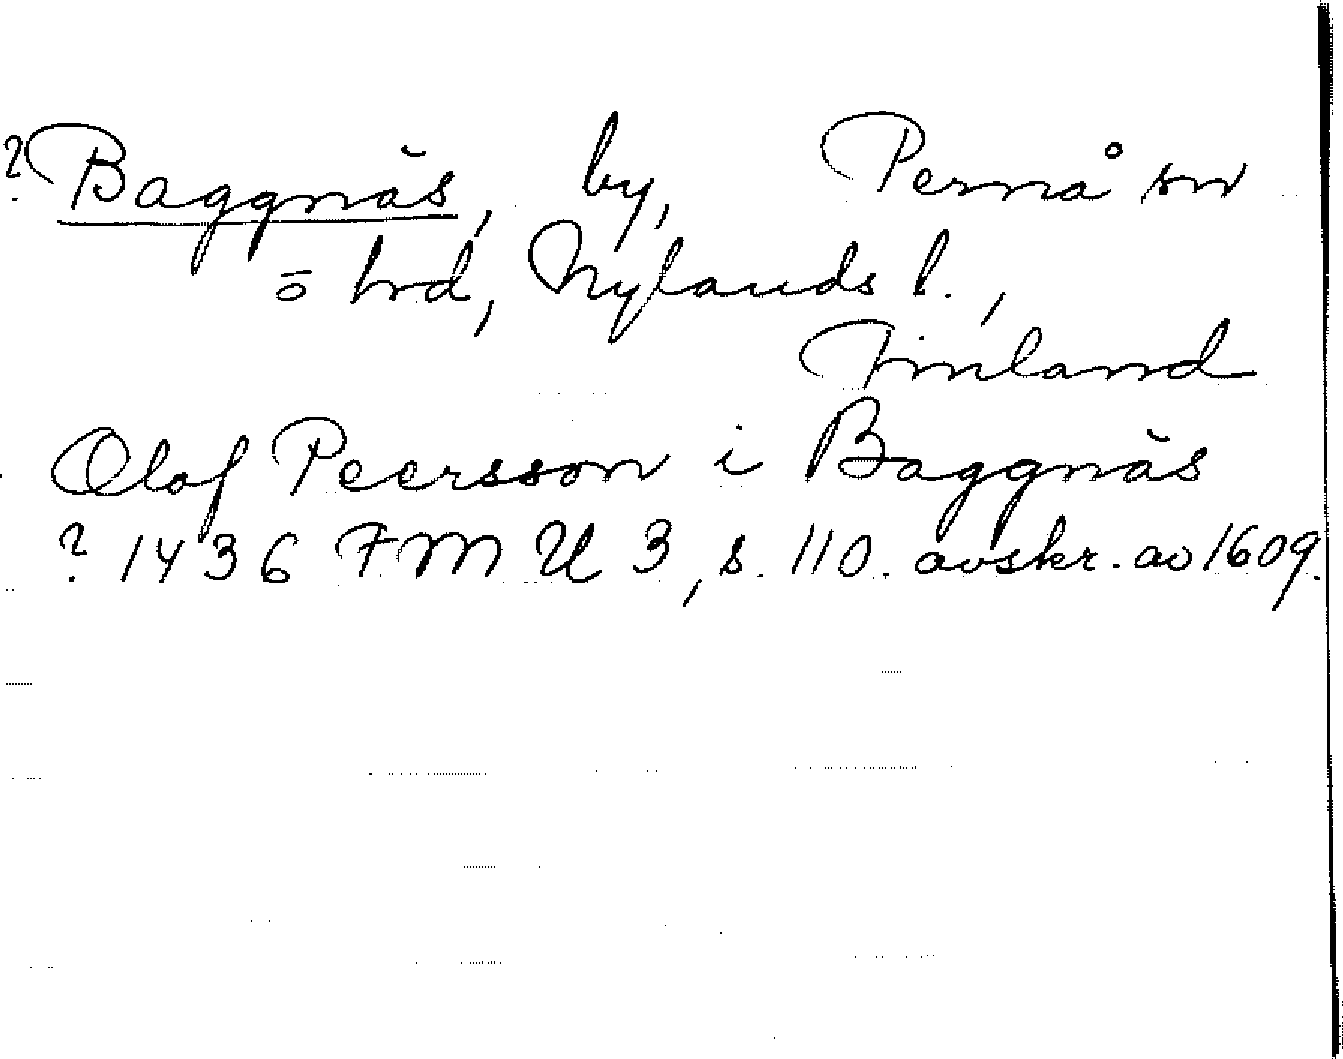 ? Baggnäs, by, Pernå sn
ö hd, Nylands l.,
Finland
Olof Peersson i Baggnäs
? 1436 FMU 3, s. 110. avskr. av 1609.